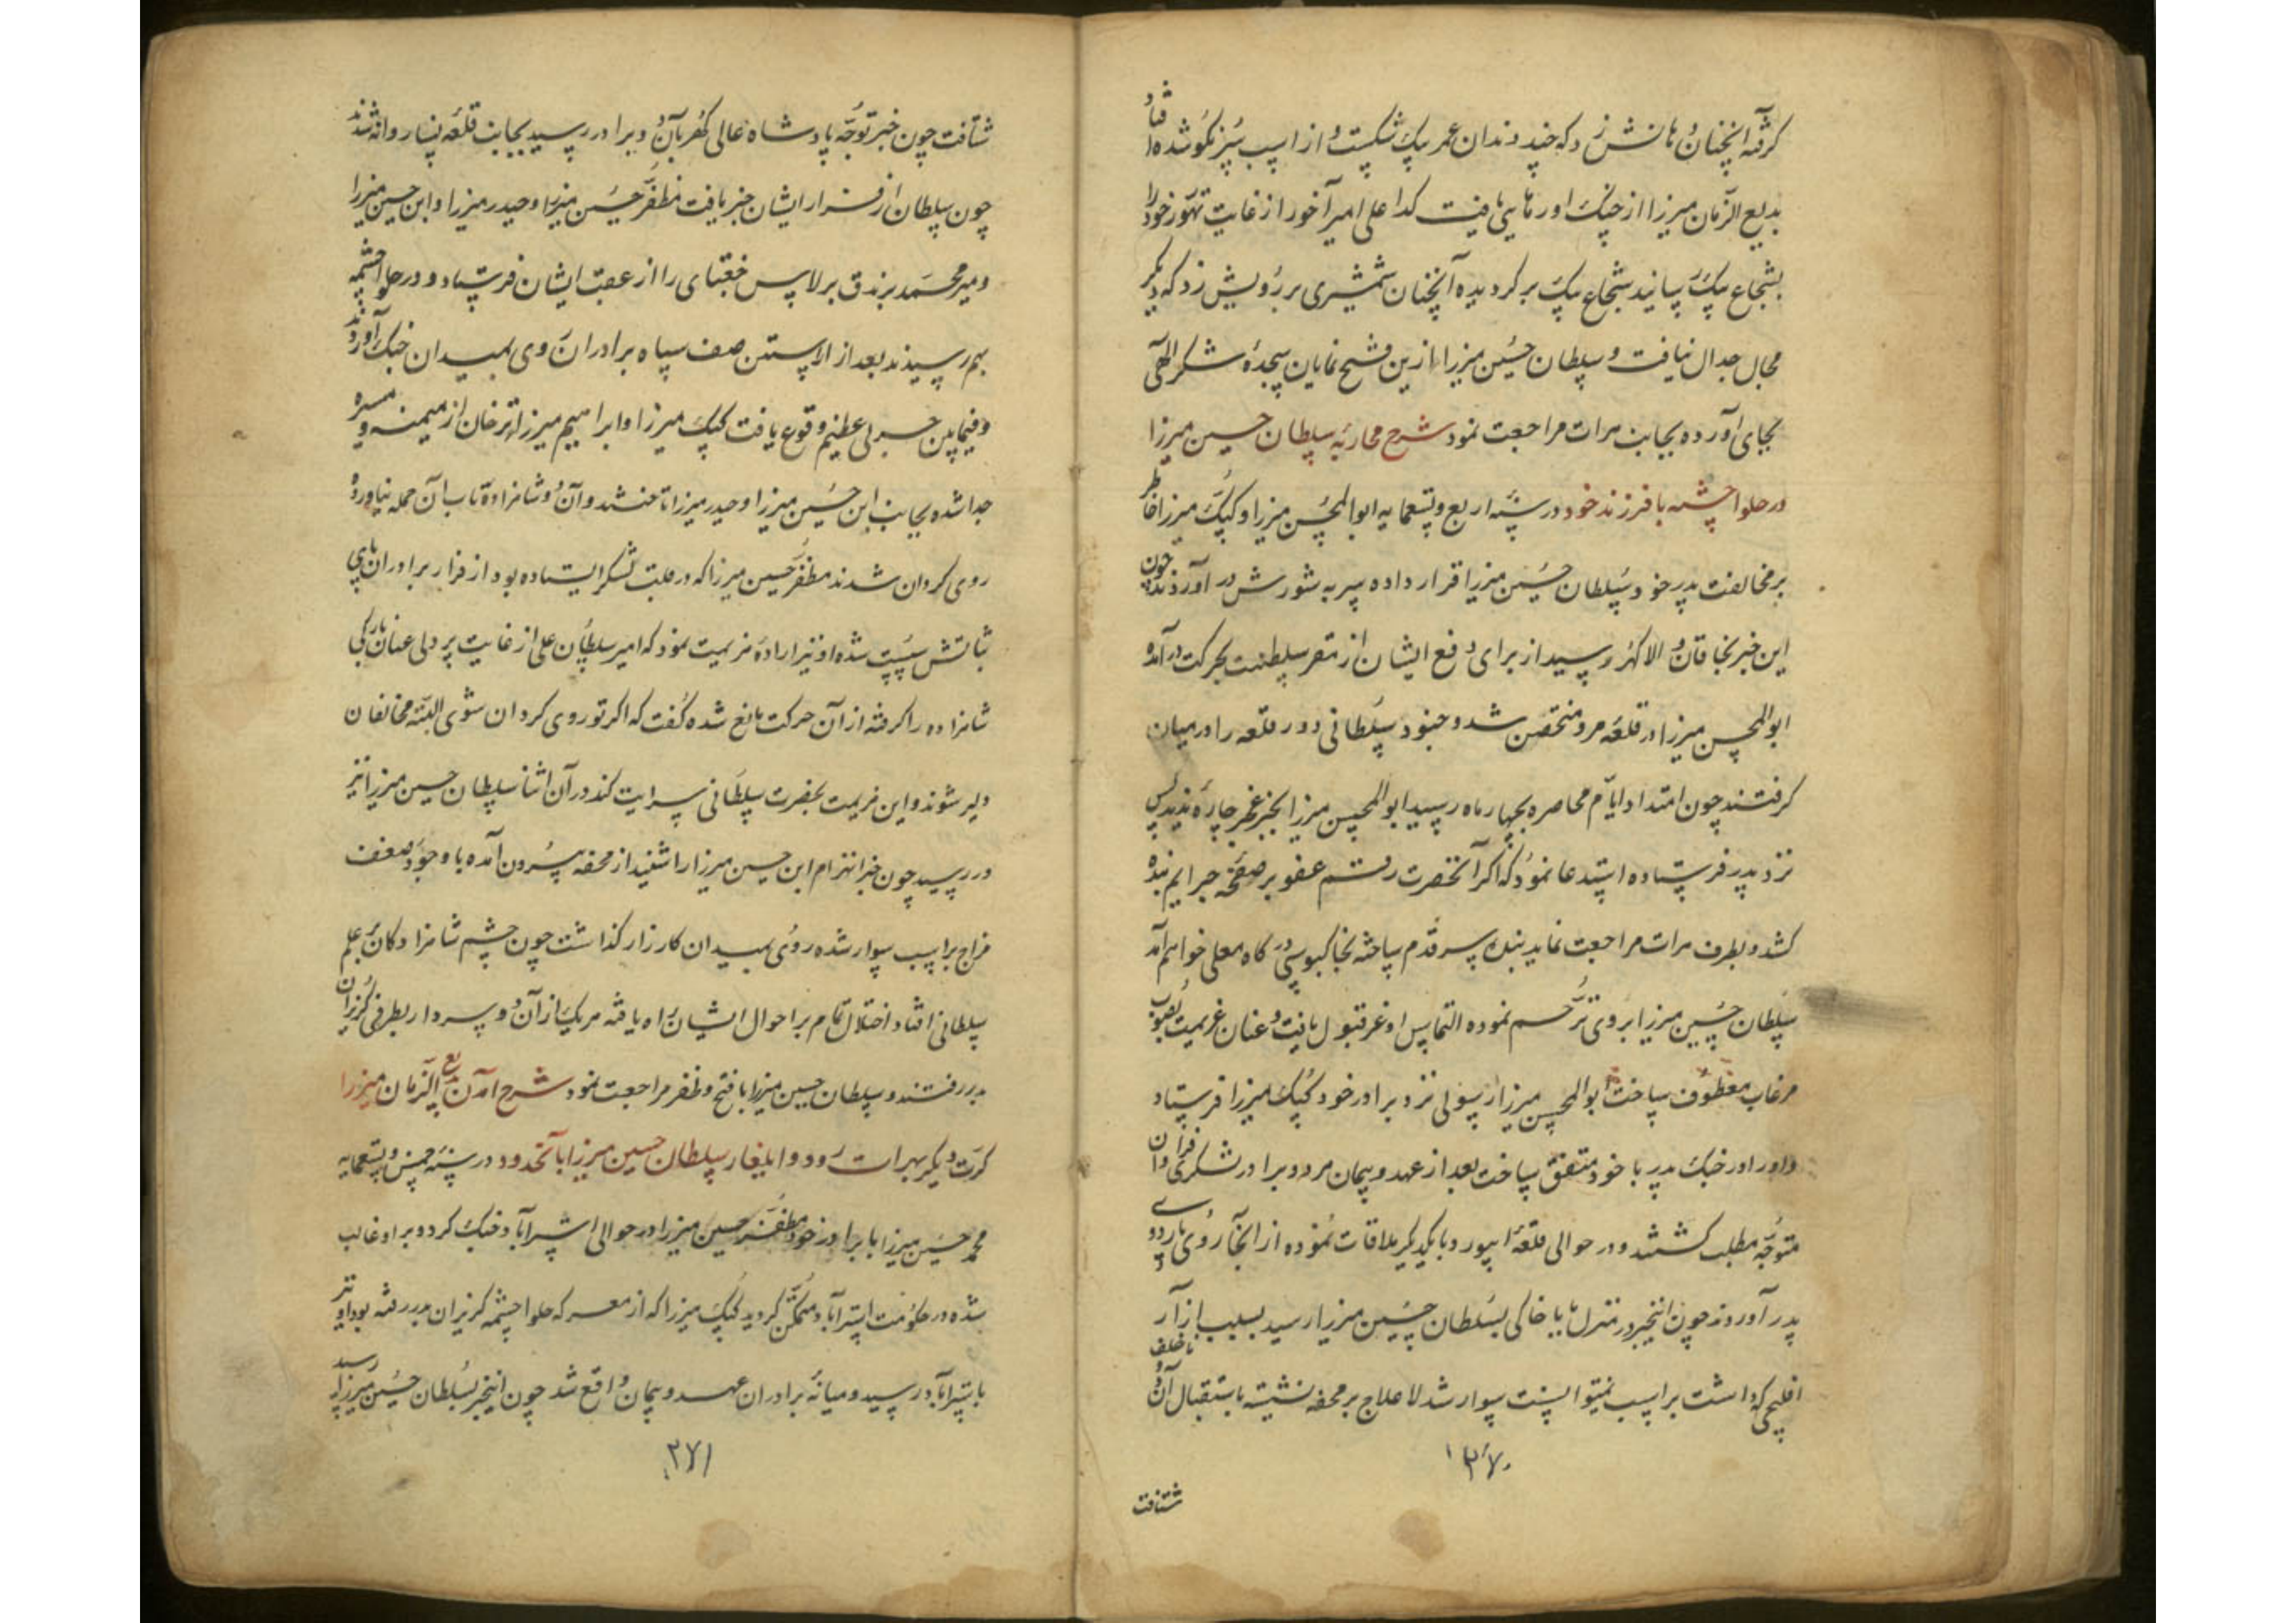 کرفته آنچنان بر دهانش زد که چند دندان عمر بیک شکست و از اسپ سرنکو شده افتاد و
بدیع الزمان میرزا از جنک او رهایی یافت کدا علی امیر آخور از غایت تهور خود را
بشجاع بیک رسانید شجاع بیک برکردیده آنچنان شمشیری بر رویش زد که دیکر
مجال جدال نیافت و سلطان حسین میرزا ازین فتح نمایان سجدۀ شکر الهی
بجای آورده بجانب هرات مراجعت نمود شرح محاربۀ سلطان حسین میرزا
در حلوا چشمه با فرزند خود در سنه اربع و تسعمایه ابوالمحسن میرزا و کپک میرزا خاطر
بر مخالفت پدر خود سلطان حسین میرزا قرار داده سر به شورش در آوردند چون
این خبر بخاقان والا کهر رسید از برای دفع ایشان از مقر سلطنت بحرکت در آمده
ابوالمحسن میرزا در قلعه مرو متحصن شد و جنود سلطانی دور قلعه را در میان
کرفتند چون امتداد ایام محاصره بچهار ماه رسید ابوالمحسن میرزا بجز عجز چاره ندید پس
نزد پدر فرستاده استدعا نمود که اکر آنحضرت رقم عفو بر صفحه جرایم بنده
کشد و بطرف هرات مراجعت نماید بنده سر قدم ساخته بخاکبوسی درکاه معلی خواهم آمد
سلطان حسین میرزا بر وی ترحم نموده التماس او عز قبول یافت و عنان عزیمت بصوب
مرغاب معطوف ساخت ابوالمحسن میرزا رسولی نزد برادر خود کپک میرزا فرستاد
و او را در جنک پدر با خود متفق ساخت بعد از عهد و پیمان هر دو برادر لشکری فراوان
متوجه مطلب کشتند و در حوالی قلعۀ ابیورد با یکدیکر ملاقات نموده از آنجا روی باردوی
پدر آوردند چون اینخبر در منزل بابا خاکی بسلطان حسین میرزا رسید بسبب آزار
افلیجی که داشت بر اسپ نمیتوانست سوار شد لا علاج بر محفه نشسته باستقبال آن دو ناخلف
۲۷۰
شتافت
شتافت چون خبر توجه پادشاه عالی کهر بآن دو برادر رسید بجانب قلعه نسا روانه شدند
چون سلطان از فرار ایشان خبر یافت مظفر حسین میرزا و حیدر میرزا و ابن حسین میرزا
و میر محمد برندق برلاس جغتای را از عقب ایشان فرستاد و در حلوا چشمه
بهم رسیدند بعد از آراستن صف سپاه برادران روی بمیدان جنک آوردند
و فیمابین حربی عظیم وقوع یافت کپک میرزا و ابراهیم میرزا ترخان از میمنه و میسره
جدا شده بجانب ابن حسین میرزا و حیدر میرزا تاختند و آن دو شاهزاده تاب آن حمله نیاورده
روی کردان شدند مظفر حسین میرزا که در قلب لشکر ایستاده بود از فرار برادران پای
ثباتش سست شده او نیز ارادۀ هزیمت نمود که امیر سلطان علی از غایت پر دلی عنان بارکی
شاهزاده را کرفته از آن حرکت مانع شده کفت که اکر تو روی کردان شوی البته مخالفان
دلیر شوند و این هزیمت بحضرت سلطانی سرایت کند در آن اثنا سلطان حسین میرزا نیز
در رسید چون خبر انهزام ابن حسین میرزا را شنید از محفه بیرون آمده با وجود ضعف
مزاج بر اسپ سوار شده روی بمیدان کارزار کذاشت چون چشم شاهزادکان بر علم
سلطانی افتاد اختلال تمام بر احوال ایشان راه یافته هر یک از آن دو سردار بطرفی کریزان
بدر رفتند و سلطان حسین میرزا با فتح و ظفر مراجعت نمود شرح آمدن بدیع الزمان میرزا
کرت دیکر بهرات رود و ایلغار سلطان حسین میرزا بآنحدود در سنه خمس و تسعمایه
محمد حسین میرزا با برادر خود مظفر حسین میرزا در حوالی استرآباد جنک کرد و بر او غالب
شده در حکومت استرآباد متمکن کردید کپک میرزا که از معرکه حلوا چشمه کریزان بدر رفته بود او نیز
باسترآباد رسید و میانۀ برادران عهد و پیمان واقع شد چون اینخبر بسلطان حسین میرزا رسید
۲۷۱